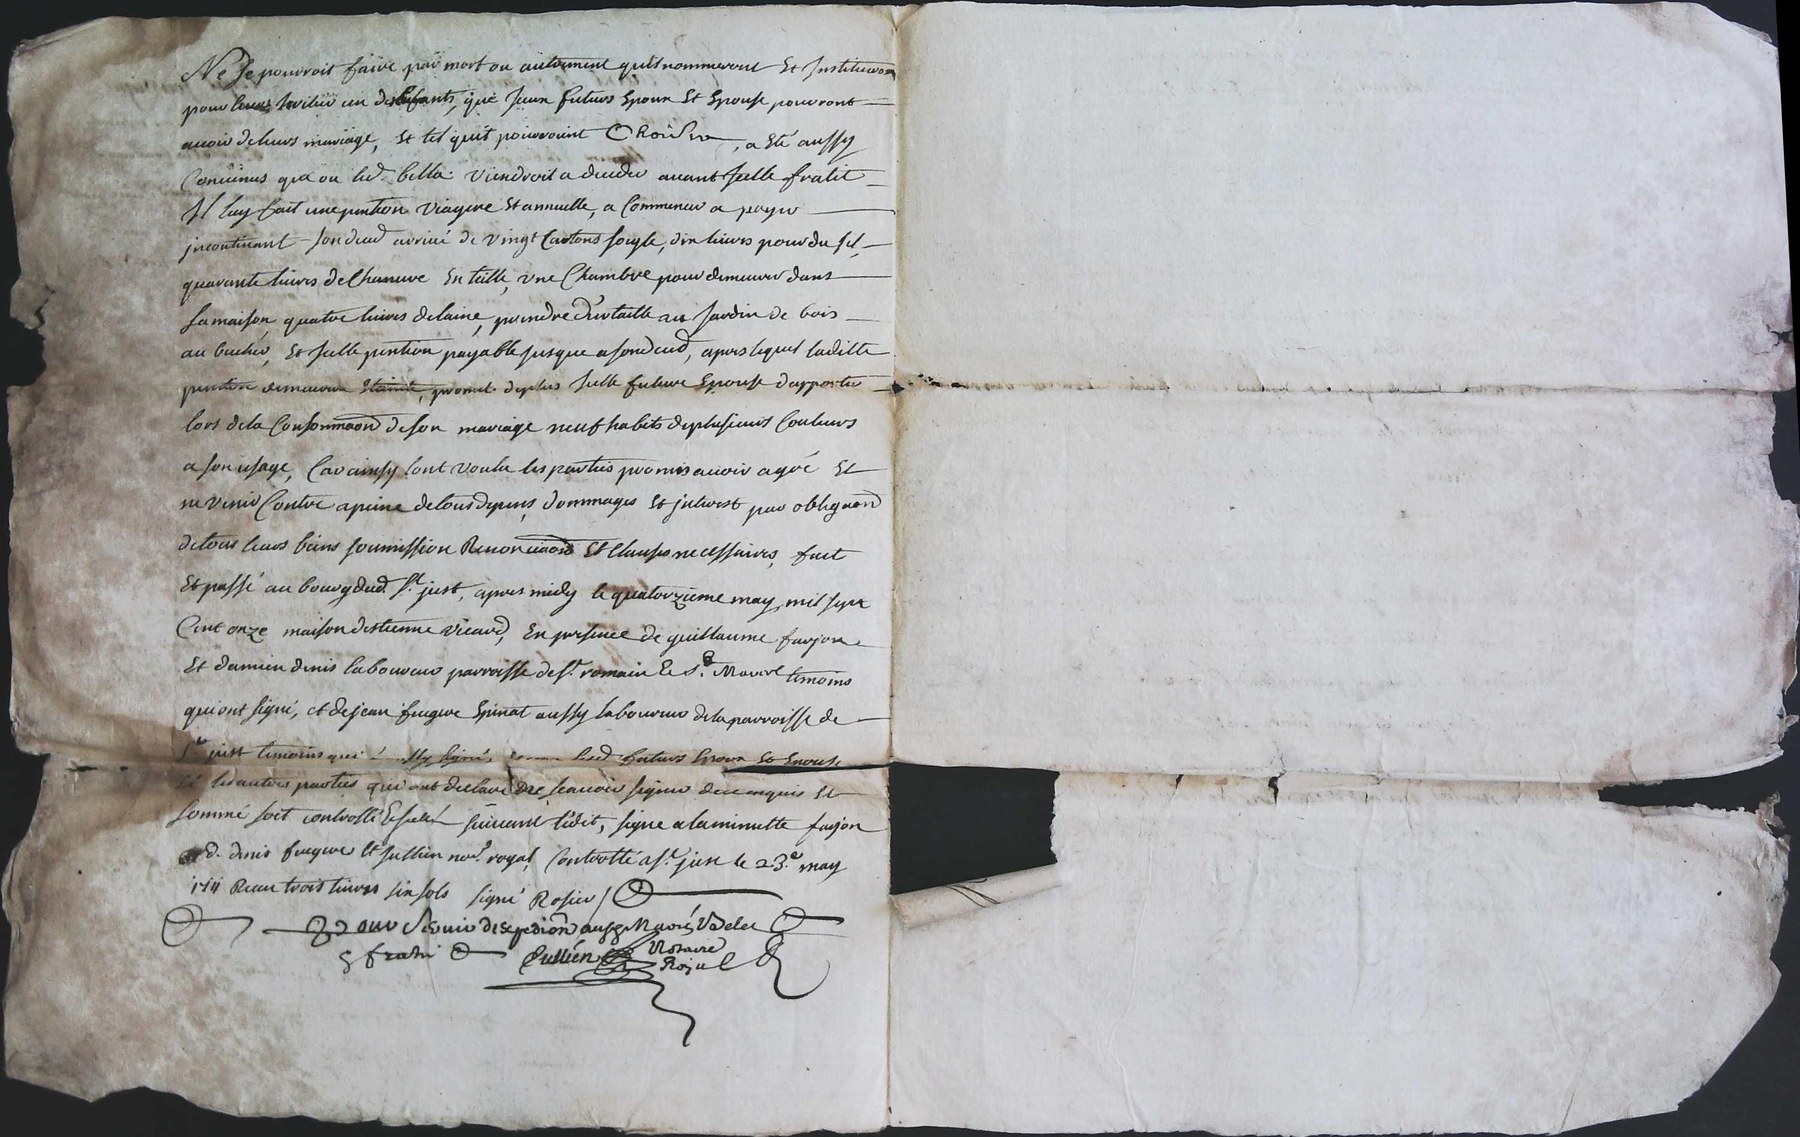 Ne Se pouvroit faire par mort ou autrement quils nommeront Et Institueron
pour leurs heritier un des Enfants, que iceux futurs Epoux Et Epouse pouvront
avoir de leurs mariage, Et tel quil pouvroient Choisir, a Eté aussy
Convenus que ou led. bella viendroit a deceder avant Icelle fratit
Il luy fait une pention viagere Et annuelle, a Commencer a payer
incontinant Son deced arrivé de vingt Cartons soigle, dix livres pour du sel,
quarante livres de Chanvre En taille, une Chambre pour demeurer dans
Sa maison quatre livres de laine, prendre d'ortaille au Jardin de bois
au bucher, Et Icelle pention payable jusque a son deced, apres lequel laditte
pention demeurera Etainte, promet deplus Icelle future Epouse d'apporter
lors de la Consommaon de son mariage neuf habits de plusieurs Couleurs
a son usage, Car ainsy l'ont voulu les parties promis avoir agré Et
ne venir Contre a peine de tous depens, dommages Et interest par obligaon
de tous leurs biens soumission Renonciaons Et Clauses necessaires, fait
Et passé au bourg dud. St. just, apres midy le quatorzieme may, mil sept
Cent onze maison d'estienne vicard, En presence de guillaume farjon
Et damien denis laboureur parroisse de St. romain Le St. Maurel temoins
qui ont signé, et de jean freygere Epinat aussy laboureur de la parroisse de
St just temoins qui signé, lesd. futurs Epoux Et Epouse
Et les autres parties qui ont declaré ne scavoir signer de ce enquis Et
sommé soit controllé Et scellé suivant l'edit, signe a la minutte farjon
d. denis freygere Et Jullien nore. royal, Controllé a St. just le 23.e may
1711 Receu trois livres six sols signé Rosier
Pour Servir dexpedion aux Mariés
fratit Jullien Notaire
Royal